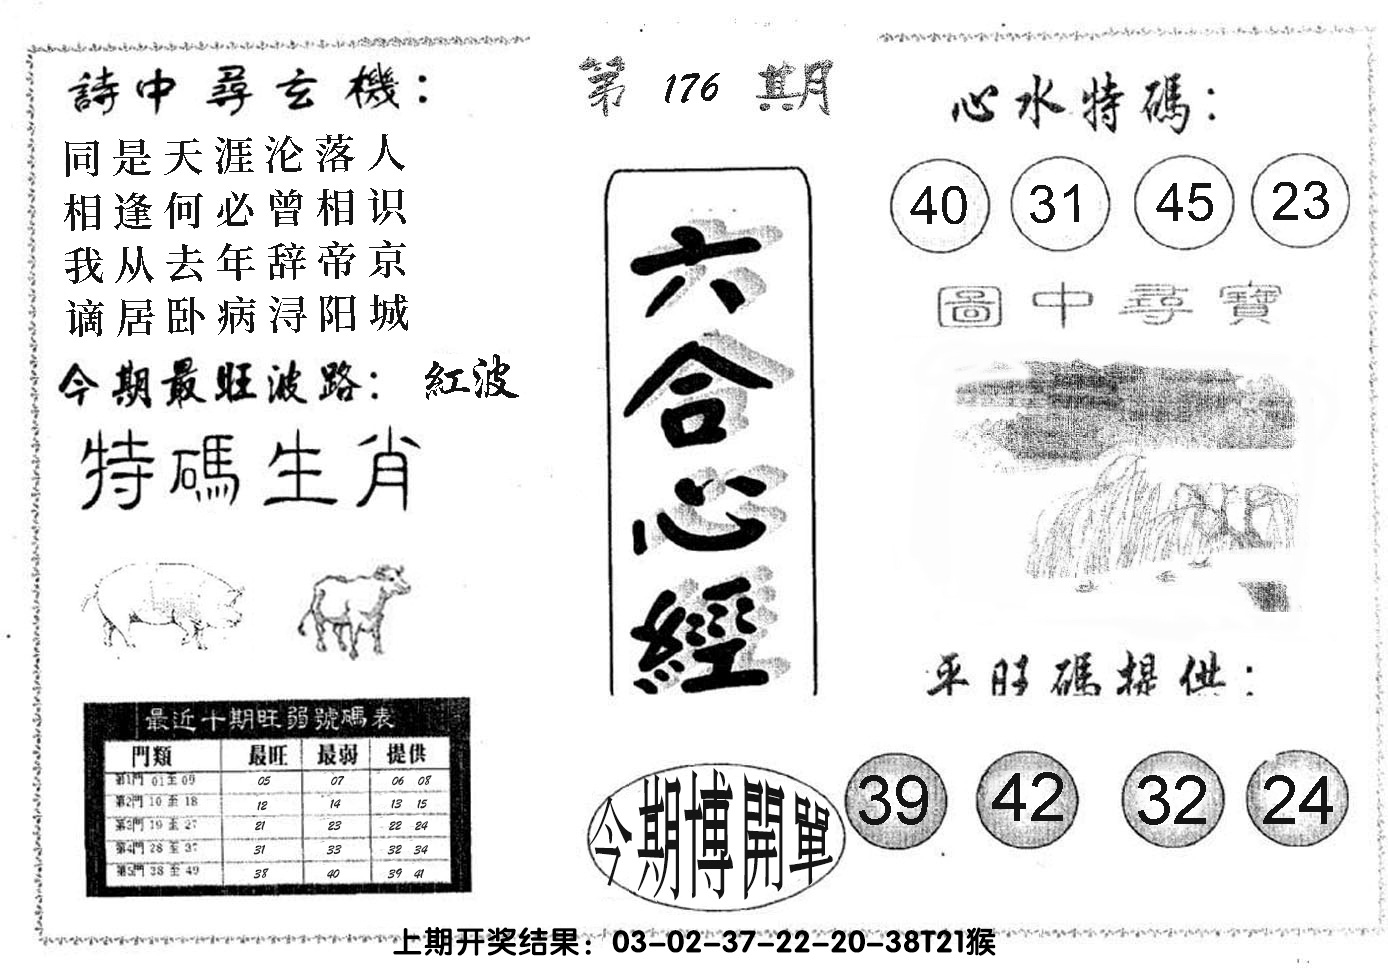 詩中尋玄機：
同是天涯沦落人
相逢何必曾相识
我从去年辞帝京
谪居卧病浔阳城
今期最旺波路： 紅波
特碼生肖
最近十期旺弱號碼表
門類 最旺 最弱 提供
第1門 01至09 05 07 06 08
第2門 10至18 12 14 13 15
第3門 19至27 21 23 22 24
第4門 28至37 31 33 32 34
第5門 38至49 38 40 39 41
第176期
六合心經
今期博開單
心水特碼：
40 31 45 23
圖中尋寶
平旺碼提供：
39 42 32 24
上期开奖结果：03-02-37-22-20-38T21猴